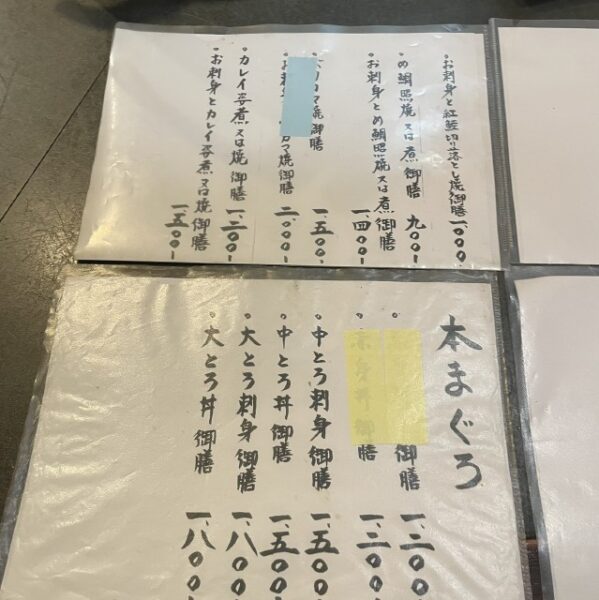 お刺身と紅鮭切り落とし焼御膳 一、〇〇〇-
め鯛照焼又は煮御膳 九〇〇-
お刺身とめ鯛照焼又は煮御膳 一、四〇〇-
カマ焼御膳 一、五〇〇-
お刺身 カマ焼御膳 二、〇〇〇-
カレイ姿煮又は焼御膳 一、二〇〇-
お刺身とカレイ姿煮又は焼御膳 一、五〇〇-
本まぐろ
御膳 一、二〇〇
身丼御膳 一、二〇〇
中とろ刺身御膳 一、五〇〇
中とろ丼御膳 一、五〇〇
大とろ刺身御膳 一、八〇〇
大とろ丼御膳 一、八〇〇